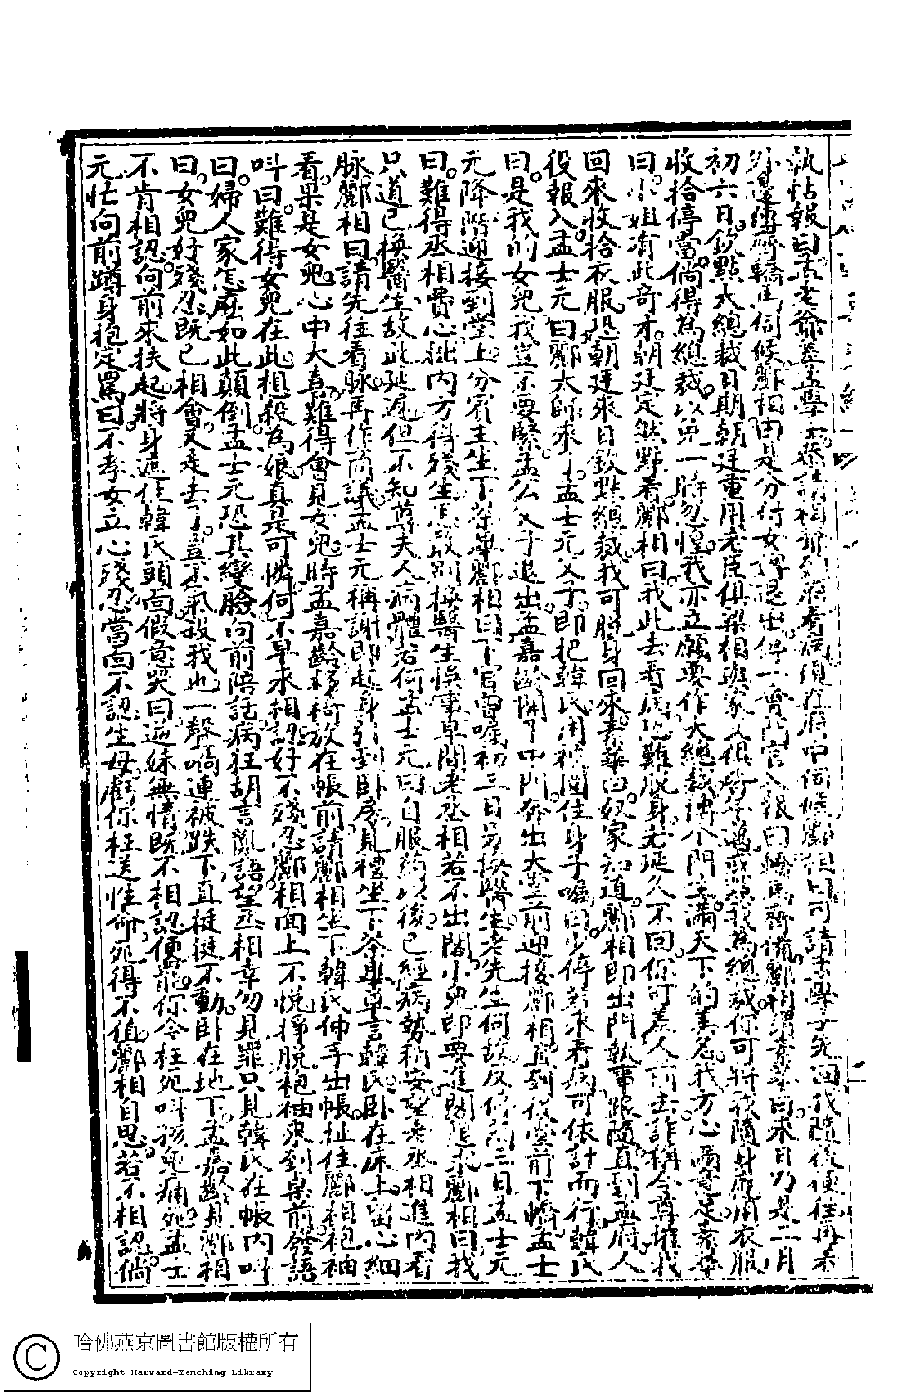 執帖報曰孟老爺孟學士在府伺候酈相曰可請孟學士先回我隨後便往再表
外邊備齊轎馬伺候酈相 曰來日乃是二月
初六日欽點大總裁日期朝廷重用老臣俱梁相
收拾停當倘得為總裁以免一時忽惶我亦立願要作大總裁博個門生滿天下的美名我方心滿意足素華
曰小姐有此奇才朝廷定然點着酈相曰我此去看病恐難脫身若延久不回你可差人前去詐稱令尊摧我
回來收拾衣服恐朝廷來日欽點總裁我可脫身回來素華曰奴家知道酈相即出門執事跟隨直到孟府人
役報入孟士元曰酈太師來了孟士元父子即把韓氏用被圍住身子囑曰少停若來看病可依計而行韓氏
曰是我的女兒我豈不要緊孟公父子退出孟嘉齡開了中門奔出大堂前迎接酈相直到後堂前下轎孟士
元降階迎接到堂上分賓主坐下茶畢酈相曰下官曾囑初三日另換醫生老先生何故反停前二日孟士元
曰難得丞相費心挑內方得殘生怎敢別換醫生悞事早間老丞相若不出閣小兒即要進閣懇求酈相曰我
只道已換醫生故此延遲但不知尊夫人病體若何孟士元曰自服藥以後已經病勢稍安望老丞相進內看
脉酈相曰請先往看脉再作商議孟士元稱謝即起身引到臥房見禮坐下茶畢單言韓氏臥在床上留心細
看果是女兒心中大喜難得會見女兒時孟嘉齡移椅放在帳前請酈相坐下韓氏伸手出帳扯住酈相袍袖
叫曰難得女兒在此想殺為娘真是可憐何不早來相認好不殘忍酈相面上不悅掙脫袍袖來到桌前發語
曰婦人家怎麽如此顛倒孟士元恐其變臉向前陪話病狂胡言亂語望丞相幸勿見罪只見韓氏在帳內叫
曰女兒好殘忍既已相會又走去了豈不氣殺我也一聲喝連被跌下直挺挺不動臥在地下孟嘉齡見酈相
不肯相認向前來扶起將身遮住韓氏頭面假意哭曰逆妹無情既不相認便罷你令枉死叫孩兒痛死孟士
元忙向前蹲身抱定罵曰不孝女立心殘忍當面不認生母虧你枉送性命死得不值酈相自思若不相認倘
哈佛燕京圖書館版權所有
Copyright Harvard-Yenching Library